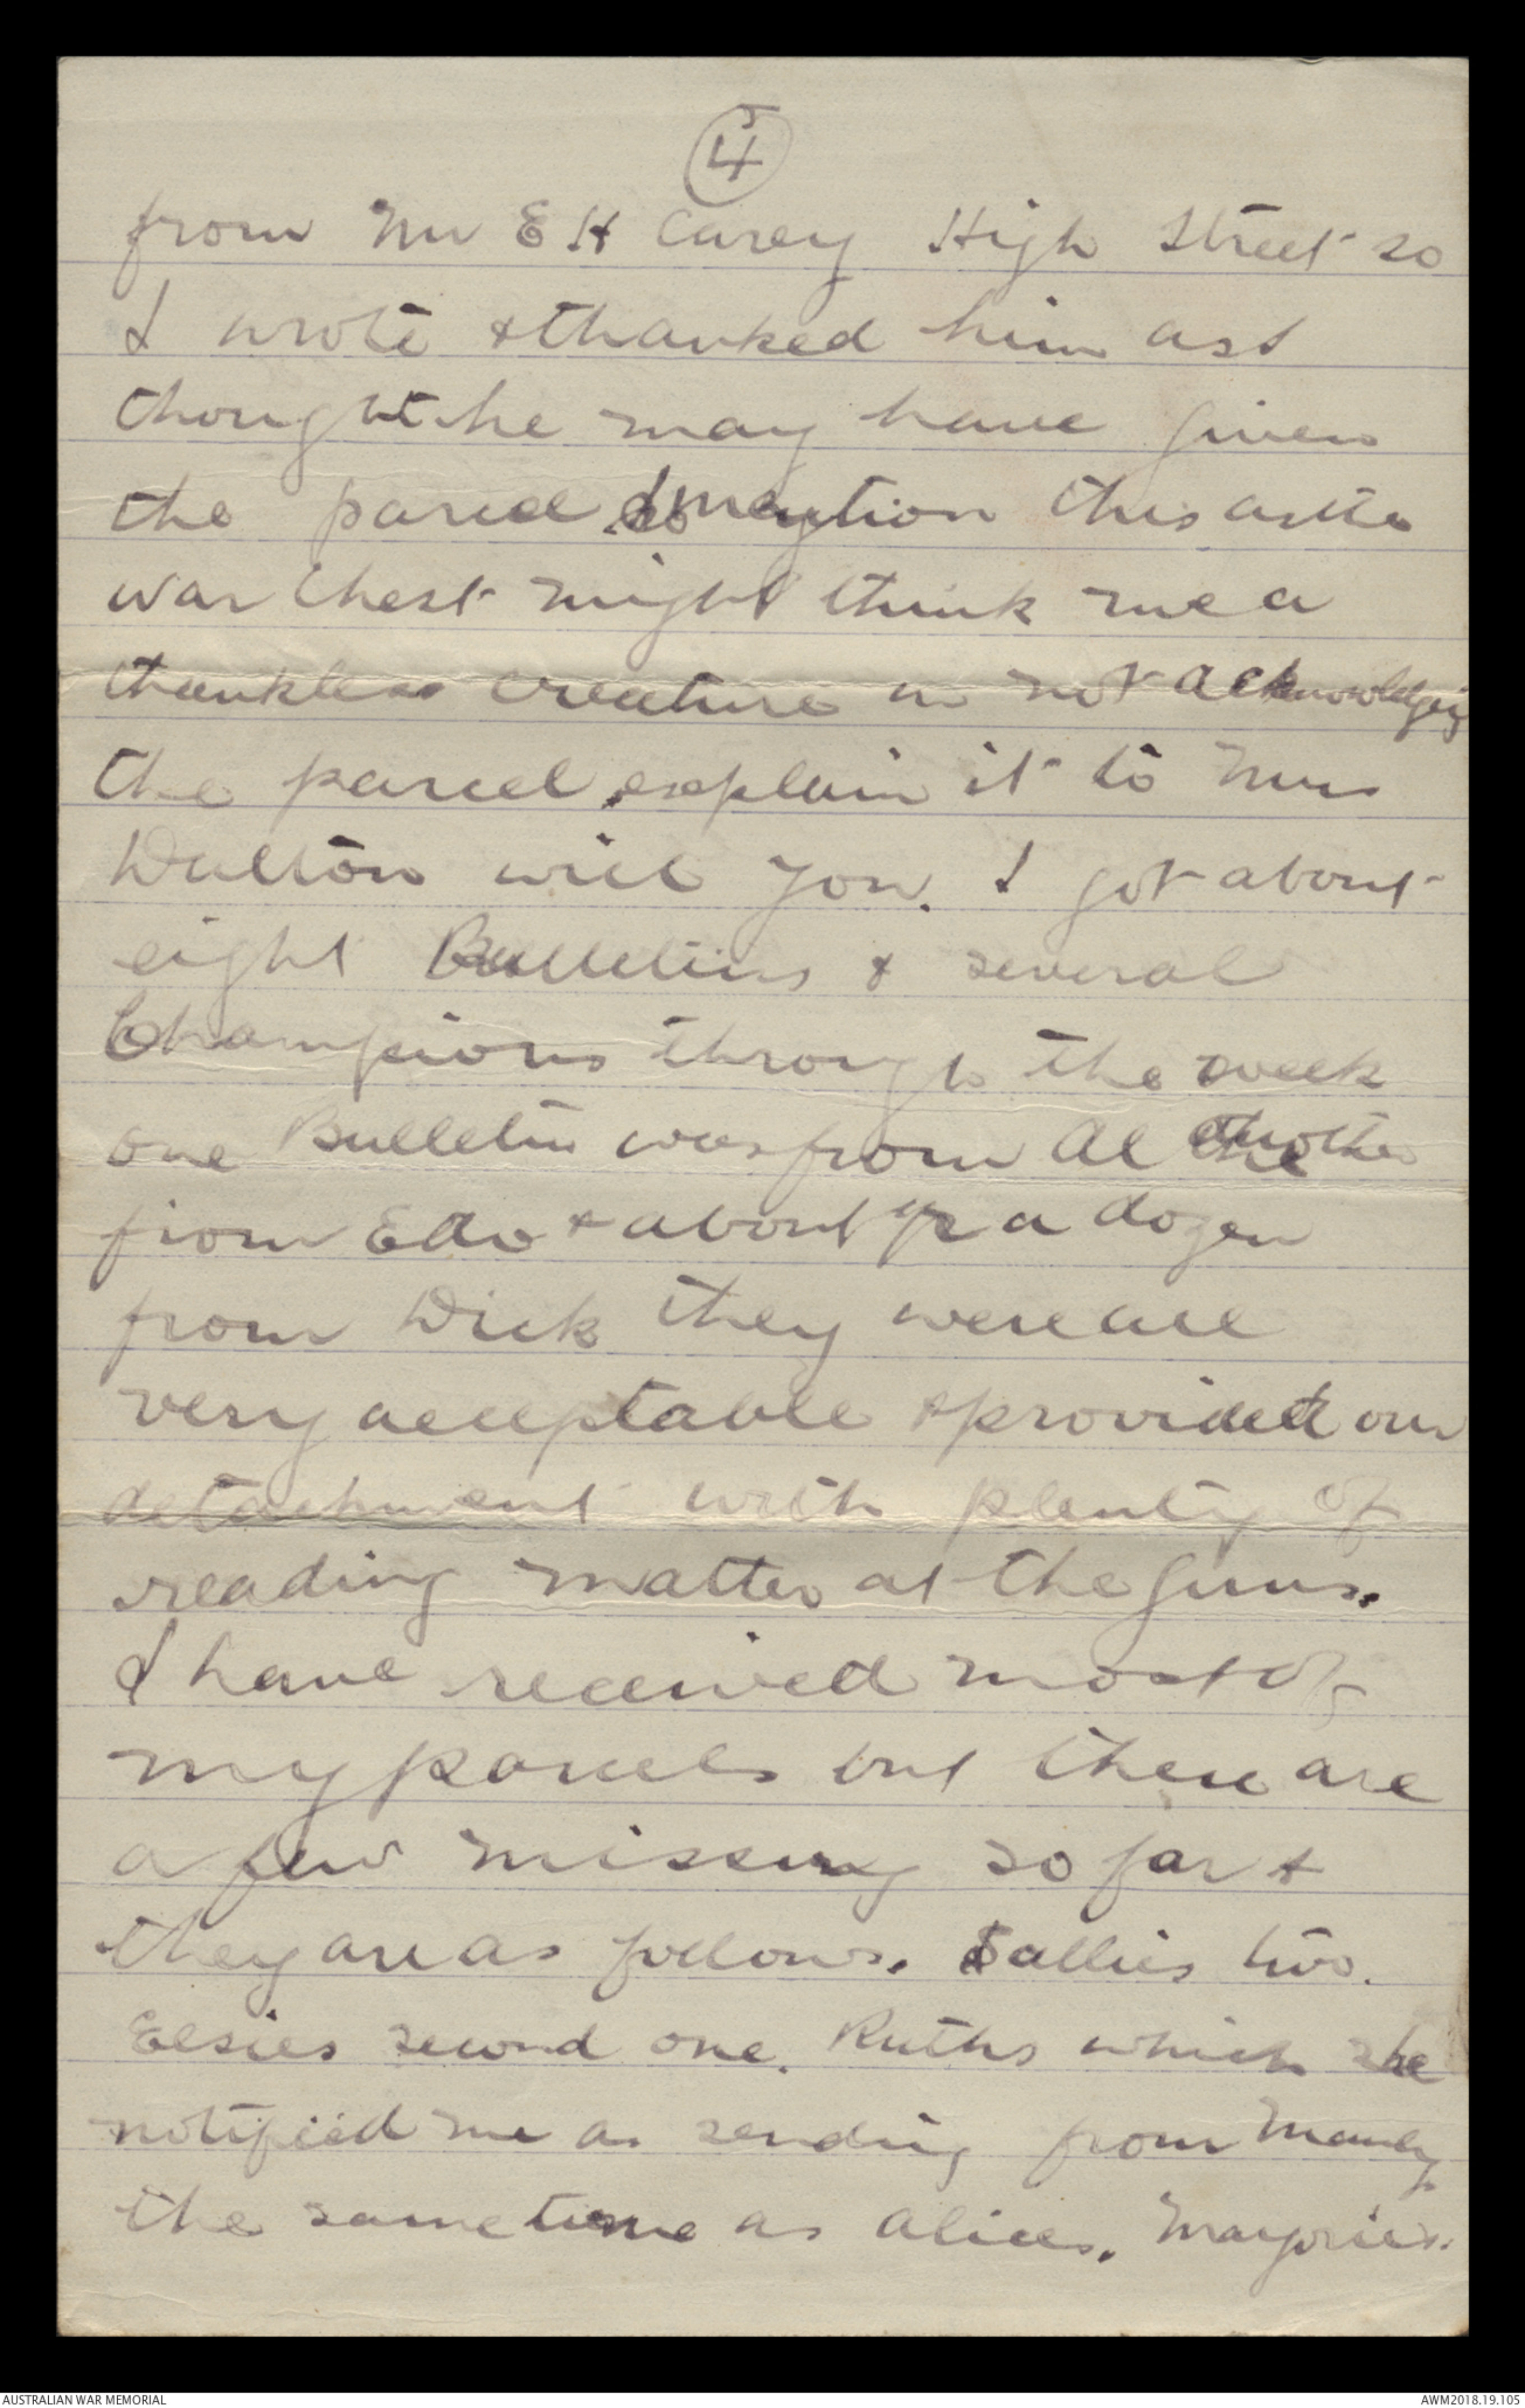 5
4
from Mr E H Carey High Street so
I wrote & thanked him as I
thought he may have given
the parcel. I mention this as the
war Chest might think me a
thankless creature in not acknowledging
the parcel, explain it to Mrs
Dalton will you. I got about
eight Bulletins & several
Champions through the week
one Bulletin was from Al another
from Edw & about 1/2 a dozen
from Dick they were all
very acceptable & provided our
detachment with plenty of
reading matter at the guns.
I have received most of
my parcels but there are
a few missing so far &
they are as follows. Sallies two.
Elsies second one. Ruths which she
notified me as sending from Manly
the same time as Alices. Marjories.
AUSTRALIAN WAR MEMORIAL
AWM2018.19.105